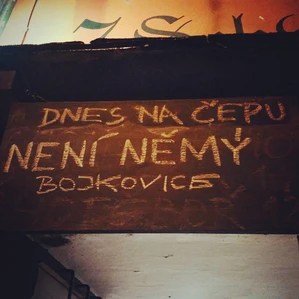 DNES NA ČEPU
NENÍ NĚMÝ
BOJKOVICE